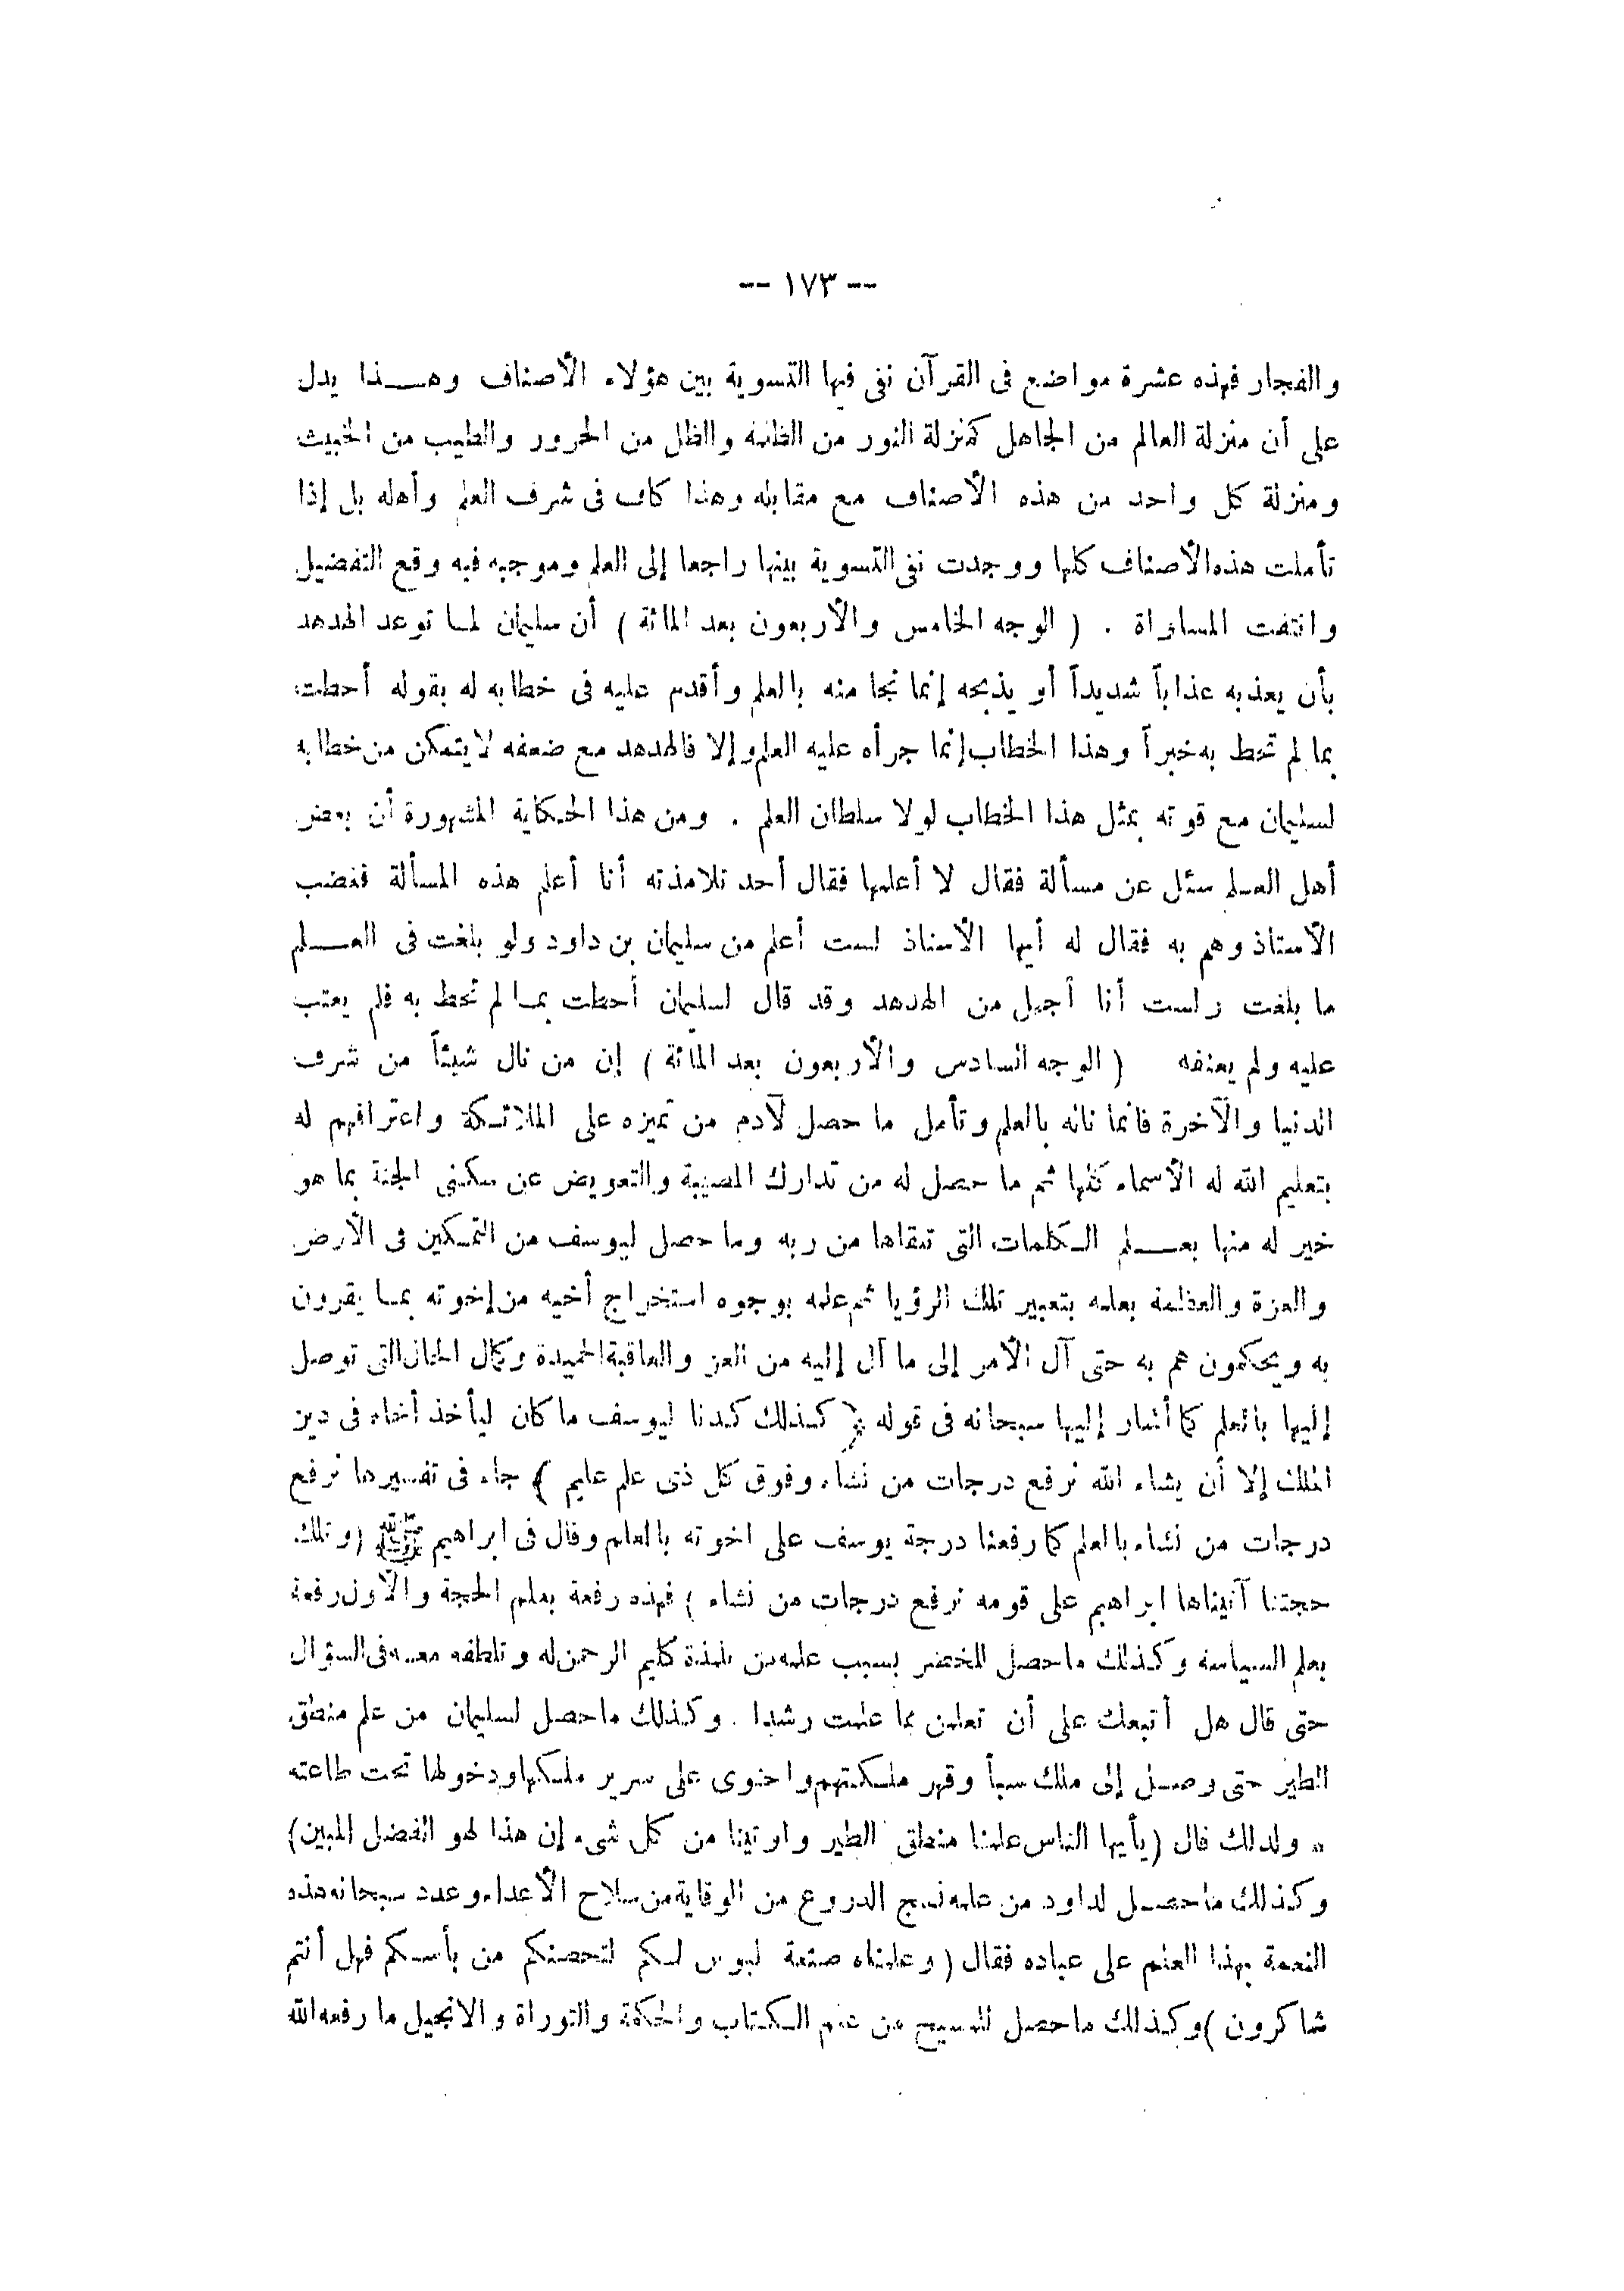 -- ١٧٣ --
والفجار فهذه عشرة مواضع فى القرآن نفى فيها التسوية بين هؤلاء الأصناف وهذا يدل
على أن منزلة العالم من الجاهل كمنزلة النور من الظلمة والظل من الحرور والطيب من الخبيث
ومنزلة كل واحد من هذه الأصناف مع مقابله وهذا كاف فى شرف العلم وأهله بل إذا
تأملت هذه الأصناف كلها ووجدت نفى التسوية بينها راجعا إلى العلم وموجبه فبه وقع التفضيل
وانتفت المساواة . ( الوجه الخامس والأربعون بعد المائة ) أن سليمان لما توعد الهدهد
بأن يعذبه عذاباً شديداً أو يذبحه إنما نجا منه بالعلم وأقدم عليه فى خطابه له بقوله أحطت
بما لم تحط به خبراً وهذا الخطاب إنما جرأه عليه العلم وإلا فالهدهد مع ضعفه لا يتمكن من خطابه
لسليمان مع قوته بمثل هذا الخطاب لولا سلطان العلم . ومن هذا الحكاية المشهورة أن بعض
أهل العلم سئل عن مسألة فقال لا أعلمها فقال أحد تلامذته أنا أعلم هذه المسألة فغضب
الأستاذ وهم به فقال له أيها الأستاذ لست أعلم من سليمان بن داود ولو بلغت فى العلم
ما بلغت ولست أنا أجهل من الهدهد وقد قال لسليمان أحطت بما لم تحط به فلم يعتب
عليه ولم يعنفه ( الوجه السادس والأربعون بعد المائة ) إن من نال شيئاً من شرف
الدنيا والآخرة فانما ناله بالعلم وتأمل ما حصل لآدم من تميزه على الملائكة واعترافهم له
بتعليم الله له الأسماء كلها ثم ما حصل له من تدارك المصيبة والتعويض عن سكنى الجنة بما هو
خير له منها بعلم الكلمات التى تلقاها من ربه وما حصل ليوسف من التمكين فى الأرض
والعزة والعظمة بعلمه بتعبير تلك الرؤيا ثم علمه بوجوه استخراج أخيه من إخوته بما يقرون
به ويحكمون هم به حتى آل الأمر إلى ما آل إليه من العز والعاقبة الحميدة وكمال الحال التى توصل
إليها بالعلم كما أشار إليها سبحانه فى قوله ﴿ كذلك كدنا ليوسف ما كان ليأخذ أخاه فى دين
الملك إلا أن يشاء الله نرفع درجات من نشاء وفوق كل ذى علم عليم ﴾ جاء فى تفسيرها نرفع
درجات من نشاء بالعلم كما رفعنا درجة يوسف على اخوته بالعلم وقال فى ابراهيم ﷺ (وتلك
حجتنا آتيناها ابراهيم على قومه نرفع درجات من نشاء ) فهذه رفعة بعلم الحجة والأول رفعة
بعلم السياسة وكذلك ما حصل للخضر بسبب علمه من تلمذة كليم الرحمن له وتلطفه معه فى السؤال
حتى قال هل أتبعك على أن تعلمن مما علمت رشدا . وكذلك ما حصل لسليمان من علم منطق
الطير حتى وصل إلى ملك سبأ وقهر ملكتهم واحتوى على سرير ملكها ودخولها تحت طاعته
ولذلك قال (يأيها الناس علمنا منطق الطير واوتينا من كل شىء إن هذا لهو الفضل المبين)
وكذلك ما حصل لداود من علمه نسج الدروع من الوقاية من سلاح الأعداء وعدد سبحانه هذه
النعمة بهذا العلم على عباده فقال ( وعلمناه صنعة لبوس لكم لتحصنكم من بأسكم فهل أنتم
شاكرون )وكذلك ما حصل للمسيح من علم الكتاب والحكمة والتوراة والانجيل ما رفعه الله